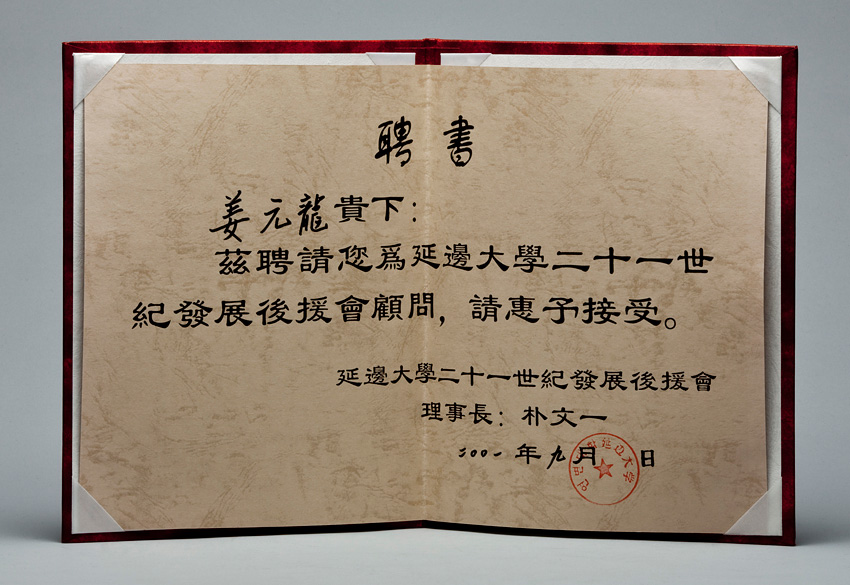 聘書
姜元龍貴下：
茲聘請您爲延邊大學二十一世
紀發展後援會顧問，請惠予接受。
延邊大學二十一世紀發展後援會
理事長：朴文一
二00一年九月 日
延边大学